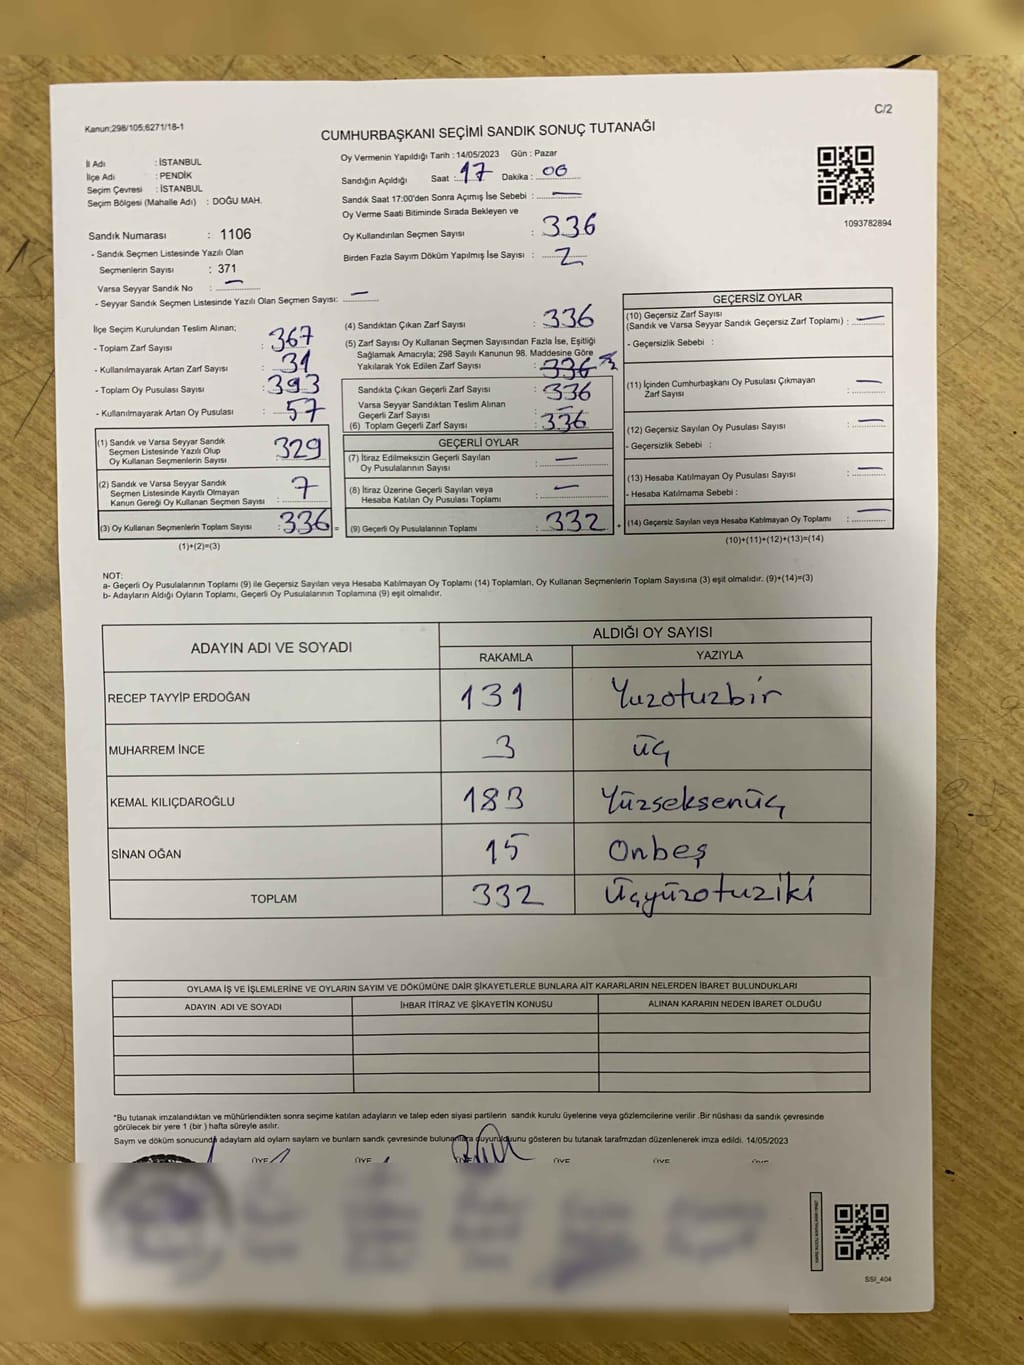 C/2
Kanun;298/105;6271/18-1
CUMHURBAŞKANI SEÇİMİ SANDIK SONUÇ TUTANAĞI
İl Adı : İSTANBUL
İlçe Adı : PENDİK
Seçim Çevresi : İSTANBUL
Seçim Bölgesi (Mahalle Adı) : DOĞU MAH.
Oy Vermenin Yapıldığı Tarih : 14/05/2023 Gün : Pazar
Sandığın Açıldığı Saat : 17 Dakika : 00
Sandık Saat 17:00'den Sonra Açımış İse Sebebi : —
Oy Verme Saati Bitiminde Sırada Bekleyen ve
Oy Kullandırılan Seçmen Sayısı : 336
Birden Fazla Sayım Döküm Yapılmış İse Sayısı : 2
1093782894
Sandık Numarası : 1106
- Sandık Seçmen Listesinde Yazılı Olan
Seçmenlerin Sayısı : 371
Varsa Seyyar Sandık No : —
- Seyyar Sandık Seçmen Listesinde Yazılı Olan Seçmen Sayısı: —
İlçe Seçim Kurulundan Teslim Alınan;
- Toplam Zarf Sayısı : 367
- Kullanılmayarak Artan Zarf Sayısı : 31
- Toplam Oy Pusulası Sayısı : 393
- Kullanılmayarak Artan Oy Pusulası : 57
(1) Sandık ve Varsa Seyyar Sandık
Seçmen Listesinde Yazılı Olup
Oy Kullanan Seçmenlerin Sayısı : 329
(2) Sandık ve Varsa Seyyar Sandık
Seçmen Listesinde Kayıtlı Olmayan
Kanun Gereği Oy Kullanan Seçmen Sayısı : 7
(3) Oy Kullanan Seçmenlerin Toplam Sayısı : 336 =
(1)+(2)=(3)
(4) Sandıktan Çıkan Zarf Sayısı : 336
(5) Zarf Sayısı Oy Kullanan Seçmen Sayısından Fazla İse, Eşitliği
Sağlamak Amacıyla; 298 Sayılı Kanunun 98. Maddesine Göre
Yakılarak Yok Edilen Zarf Sayısı : 336
Sandıkta Çıkan Geçerli Zarf Sayısı : 336
Varsa Seyyar Sandıktan Teslim Alınan
Geçerli Zarf Sayısı : —
(6) Toplam Geçerli Zarf Sayısı : 336
GEÇERLİ OYLAR
(7) İtiraz Edilmeksizin Geçerli Sayılan
Oy Pusulalarının Sayısı : —
(8) İtiraz Üzerine Geçerli Sayılan veya
Hesaba Katılan Oy Pusulası Toplamı : —
(9) Geçerli Oy Pusulalarının Toplamı : 332 +
GEÇERSİZ OYLAR
(10) Geçersiz Zarf Sayısı
(Sandık ve Varsa Seyyar Sandık Geçersiz Zarf Toplamı) : —
- Geçersizlik Sebebi :
(11) İçinden Cumhurbaşkanı Oy Pusulası Çıkmayan
Zarf Sayısı : —
(12) Geçersiz Sayılan Oy Pusulası Sayısı : —
- Geçersizlik Sebebi :
(13) Hesaba Katılmayan Oy Pusulası Sayısı : —
- Hesaba Katılmama Sebebi :
(14) Geçersiz Sayılan veya Hesaba Katılmayan Oy Toplamı : —
(10)+(11)+(12)+(13)=(14)
NOT:
a- Geçerli Oy Pusulalarının Toplamı (9) ile Geçersiz Sayılan veya Hesaba Katılmayan Oy Toplamı (14) Toplamları, Oy Kullanan Seçmenlerin Toplam Sayısına (3) eşit olmalıdır. (9)+(14)=(3)
b- Adayların Aldığı Oyların Toplamı, Geçerli Oy Pusulalarının Toplamına (9) eşit olmalıdır.
ADAYIN ADI VE SOYADI ALDIĞI OY SAYISI
RAKAMLA YAZIYLA
RECEP TAYYİP ERDOĞAN 131 Yuzotuzbir
MUHARREM İNCE 3 üç
KEMAL KILIÇDAROĞLU 183 Yüzseksenüç
SİNAN OĞAN 15 Onbeş
TOPLAM 332 Üçyüzotuziki
OYLAMA İŞ VE İŞLEMLERİNE VE OYLARIN SAYIM VE DÖKÜMÜNE DAİR ŞİKAYETLERLE BUNLARA AİT KARARLARIN NELERDEN İBARET BULUNDUKLARI
ADAYIN ADI VE SOYADI İHBAR İTİRAZ VE ŞİKAYETİN KONUSU ALINAN KARARIN NEDEN İBARET OLDUĞU
*Bu tutanak imzalandıktan ve mühürlendikten sonra seçime katılan adayların ve talep eden siyasi partilerin sandık kurulu üyelerine veya gözlemcilerine verilir .Bir nüshası da sandık çevresinde
görülecek bir yere 1 (bir ) hafta süreyle asılır.
Sayım ve döküm sonucunda adayların ald oyların sayların ve bunların sandk çevresinde bulunanlara duyurulduunu gösteren bu tutanak tarafmzdan düzenlenerek imza edildi. 14/05/2023
ÜYE ÜYE ÜYE ÜYE ÜYE ÜYE
SSI_404